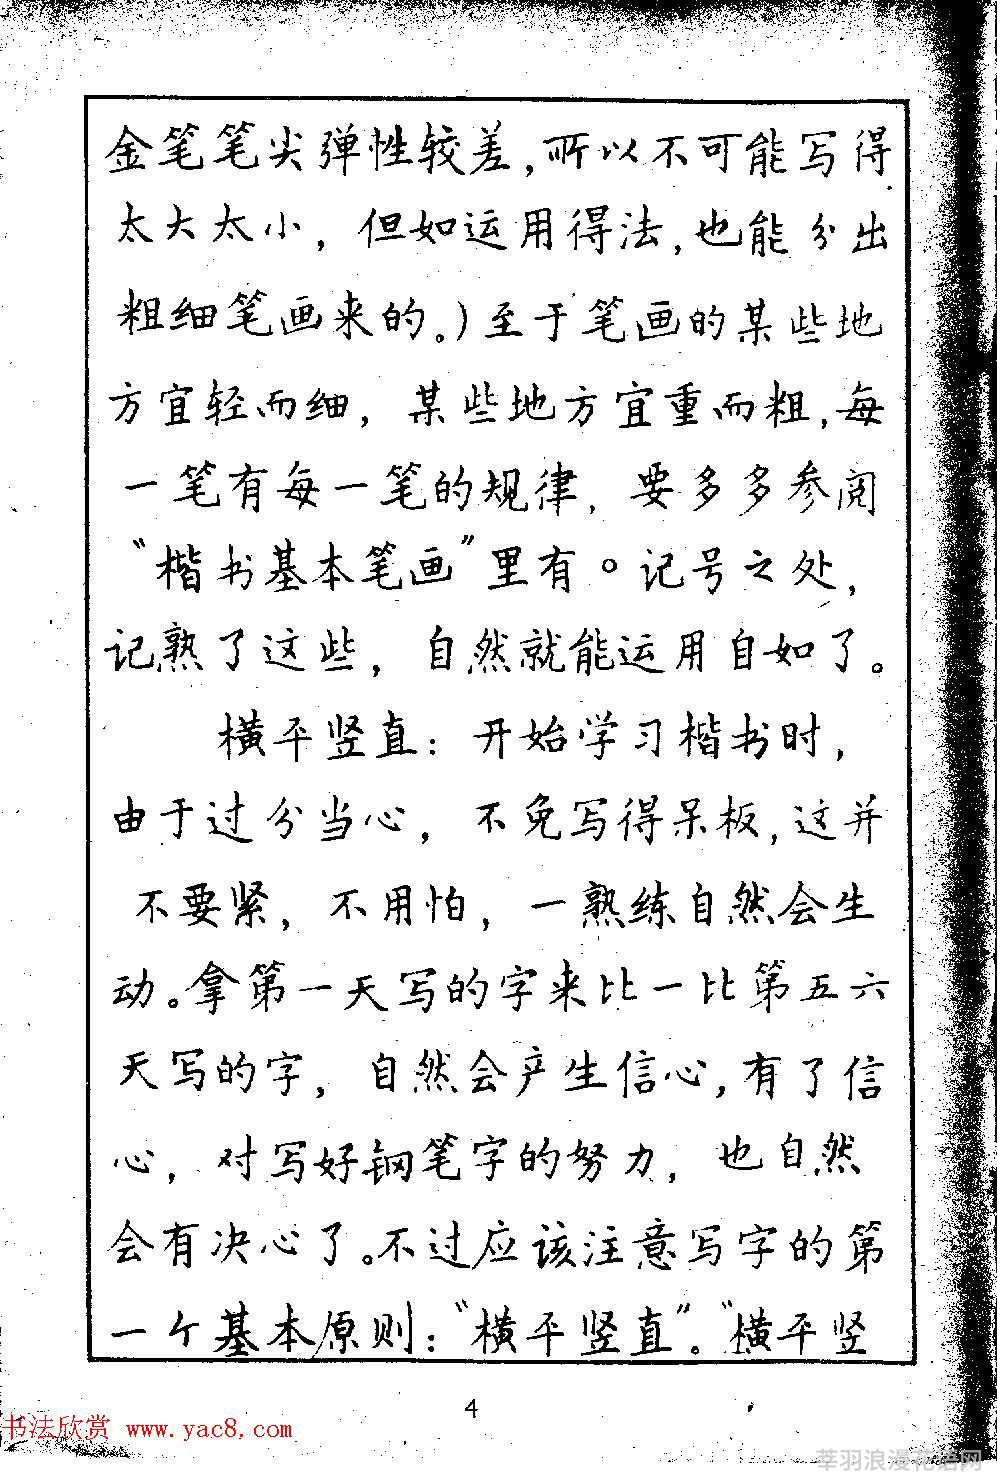 金笔笔尖弹性较差,所以不可能写得
太大太小，但如运用得法,也能分出
粗细笔画来的。)至于笔画的某些地
方宜轻而细，某些地方宜重而粗,每
一笔有每一笔的规律，要多多参阅
“楷书基本笔画”里有。记号之处，
记熟了这些，自然就能运用自如了。
横平竖直：开始学习楷书时，
由于过分当心，不免写得呆板,这并
不要紧，不用怕，一熟练自然会生
动。拿第一天写的字来比一比第五六
天写的字，自然会产生信心,有了信
心，对写好钢笔字的努力，也自然
会有决心了。不过应该注意写字的第
一个基本原则：“横平竖直”。“横平竖
4
书法欣赏 www.yac8.com
莘羽浪漫花语网